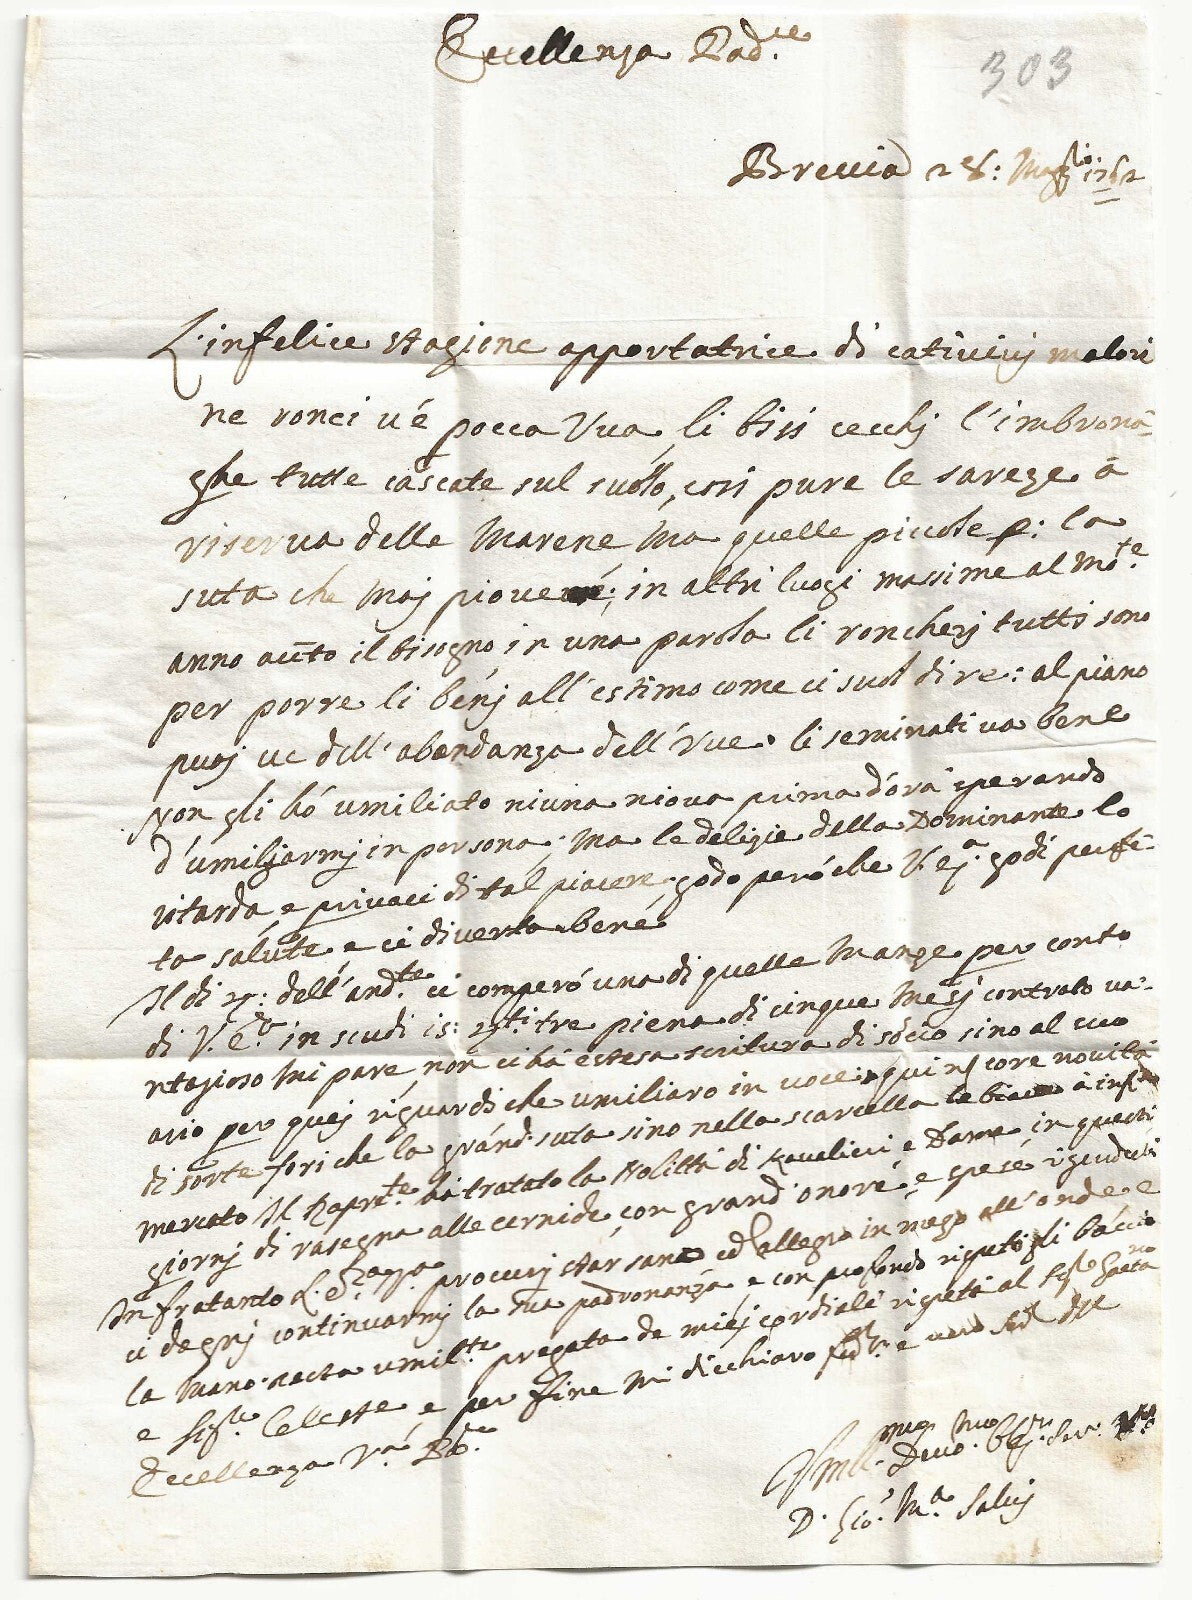 Eccellenza Pad.ce
303
Brescia 28: Mag.io 1762
L'infelice stagione apportatrice di cativivj malori
ne ronci v'é pocca Vua, li bisi secchj l'imbrona-
ghe tutte cascate sul suólo, cosi pure le sareze a
riserva delle Marene ma quelle piccole p: la
suta che maj piove; in altri luogi massime al mo.te
anno auto il bisogno in una parola li roncherj tutti sono
per porre li benj all'estimo come si suol dire: al piano
puoj ve dell'abondanza dell'Vue. li seminati va bene
Non gli hó umiliato niuna niova prima d'ora sperando
d'umiliarmj in persona; ma le delizie della Dominante lo
ritarda, e privaci di tal piacere, godo peró che V. E.a godi perfe-
ta salute e si diverta bene
Il di 27: dell'and.te si comperó una di quelle Manze per conto
di V. E.a in scudi is: 27:ti tre piena di cinque mesj contrato va-
ntagioso mi pare, non si há estesa scritura di sócio sino al suo
ario per quej riguardi che umiliaro in voce, qui non core novità
di sorte fori che la gránd suta sino nella scarcella le biave á
mercato Il Rapre.te há tratato la Nobiltá di Kavalieri e Dame in questi
giornj di rasegna alle cernide con grand'onoré e spese
In fratanto L. E. procurj star sano ed allegro in mezo all'onde e
si degnj continuarmj la sua padronanza, e con profondo rispeto gli báccio
la mano resta umil.te pregata de miej cordiale rispeti al Sig.
e Sig.ra Celeste e per fine mi dicchiaro e vero
Eccellenza V.a
Umil. Devo. Obb.
D. Gio: M.a Salvj